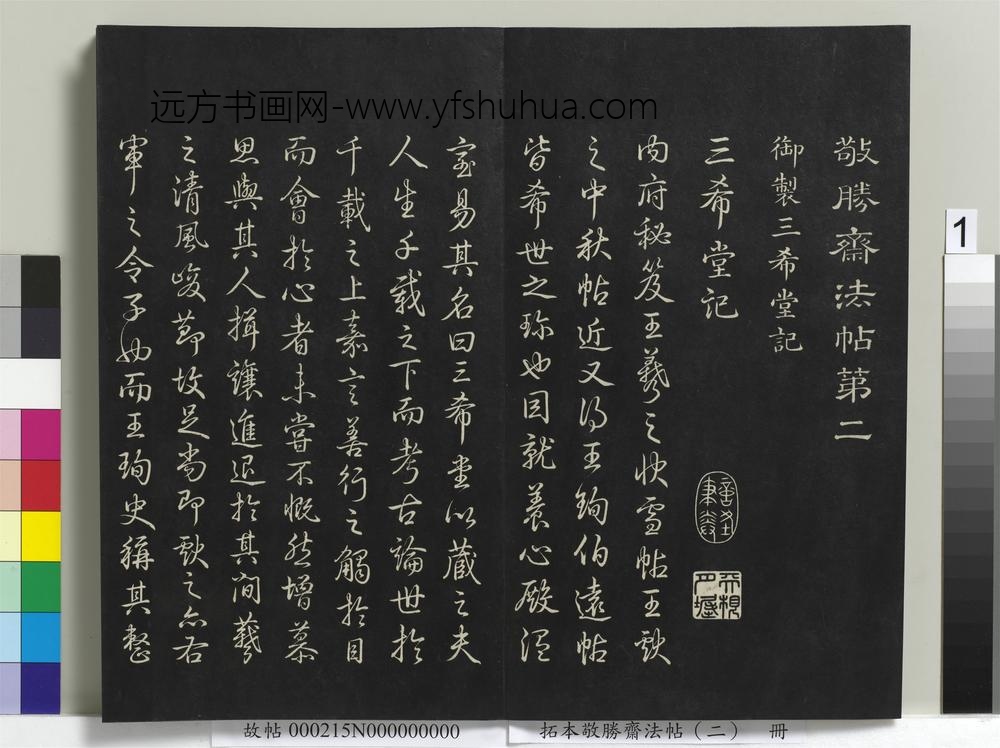 远方书画网-www.yfshuhua.com
敬勝齋法帖第二
御製三希堂記
三希堂記
內府秘笈王羲之快雪帖王獻
之中秋帖近又得王珣伯遠帖
皆希世之珍也因就養心殿溫
室易其名曰三希堂以藏之夫
人生千載之下而考古論世於
千載之上嘉言善行之觸於目
而會於心者未嘗不慨然增慕
思與其人揖讓進退於其間羲
之清風峻節故足尚即獻之亦右
軍之令子也而王珣史稱其整
1
故帖 000215N000000000
拓本敬勝齋法帖（二） 冊